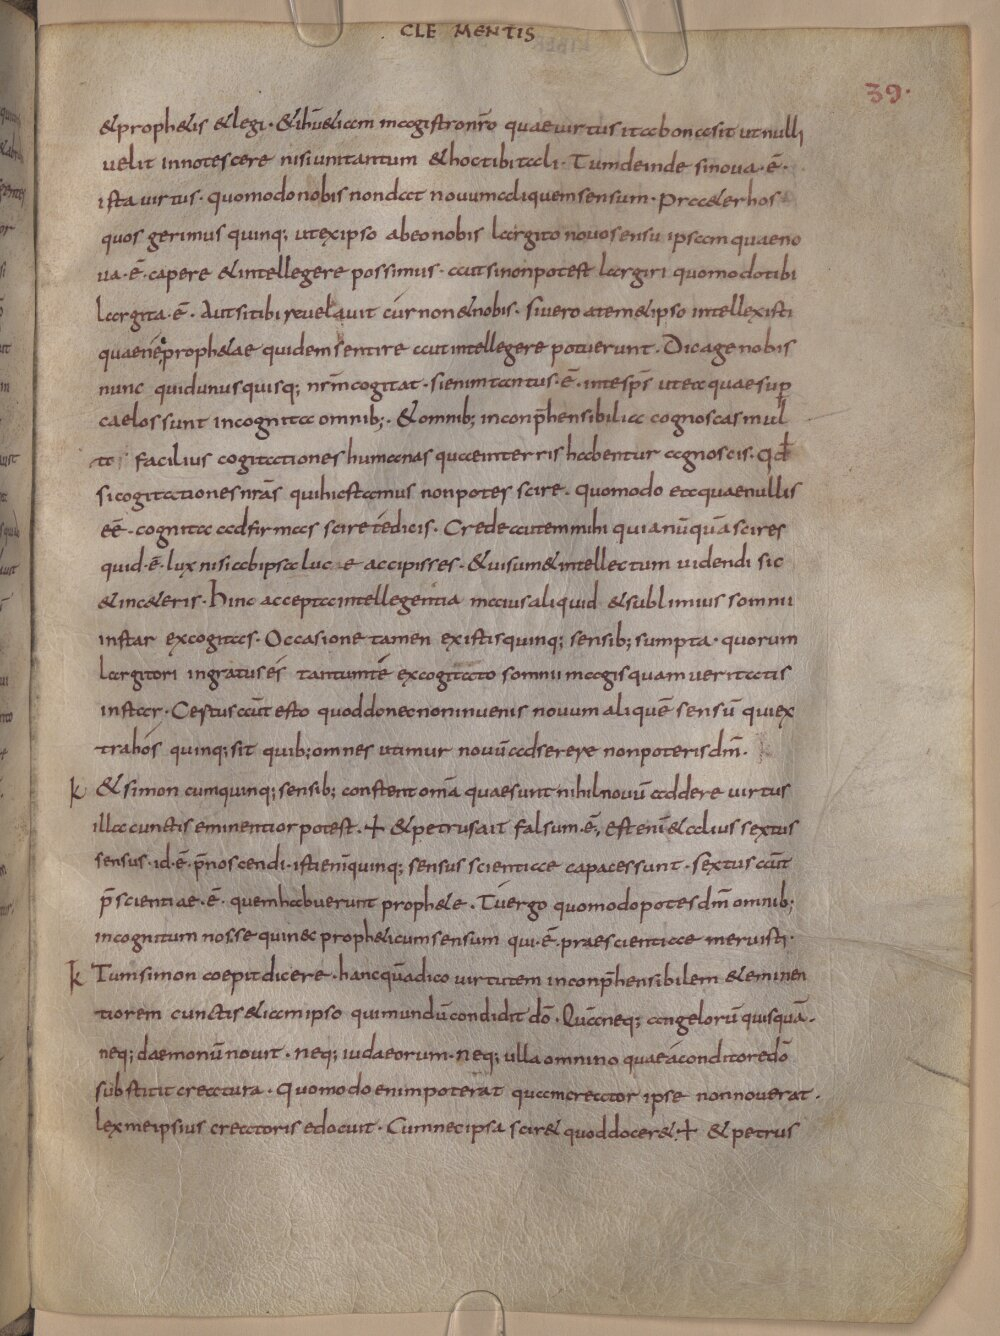 CLE MENTIS
39.
&proph&is &legi· &ihū&iam magistronr̄o quaevirtus itabonasit utnulli
uelit innotescere nisiunitantum &hoctibitali· Tumdeinde sinova·ē·
ista virtus· quomodonobis nondat novumaliquemsensum· Praet&erhos
quos gerimus quinq; utexipso abeonobis largito novosensu ipsamquaeno
ua·ē·capere &intellegere possimus· autsinonpotest largiri quomodotibi
largita·ē· Autsitibi revelavit cúrnon&nobis· sivero atem&ipso intellexisti
quaenéqprophet&ae quidemsentire autintellegere potuerunt· Dicagenobis
nunc quidunusquisq; nrm̄cogitat· sienimtantus·ē·intesps̄ utea quaesup
caelos sunt incognita omnib;· &omnib; inconp̄hensibilia cognoscas mul
ta facilius cogitationes humanas quaeinterris habentur agnoscis· Qđ
sicogitationesnrās quihicstamus nonpotes scire· quomodo eaquaenullis
eē· cognita adfirmas scire tédicis· Crede autemmihi quianūquā scires
quid·ē·lux nisiabipsa luc e accipisses· &uisum&intellectum uidendi sic
&inc&eris· hinc acceptaintellegentia maiusaliquid &sublimius somnii
instar excogitas· Occasione tamen existisquinq; sensib; sumpta· quorum
largitori ingratus és tantumtē excogitato somnii magisquam veritatis
instar· Certus aūt esto quoddonecnoninvenis novum aliquē sensū quiex
trahós quinq; sit quib; omnes utimur novū adserere nonpoterisdm̄·
k &simon cumquinq; sensib; constent omā quaesunt nihilnovū addere virtus
illa cunctis eminentior potest· + &petrusait falsum·ē, est enī &alius sextus
sensus·id·ē·p̄noscendi·istienīquinq; sensus scientiae capacessunt· sextus aūt
p̄scientiae·ē· quemhabuerunt proph&e· Túergo quomodopotesdm̄ omnib;
incognitum nosse quinec proph&icumsensum qui·ē·praescientiae meruisti·
k Tumsimon coepitdicere· hancquā dico virtutem inconp̄hensibilem &eminen
tiorem cunctis &iam ipso quimundūcondidit dō· Quāneq; angelorū quisquā·
neq; daemonū novit· neq; iudaeorum· neq; ulla omnino quaeáconditoredō
substitit creatura· Quomodo enimpoterat quamcreator ipse nonnoverat·
lexmeipsius creatoris edocuit· Cumnecipsa scir& quoddocer& + &petrus